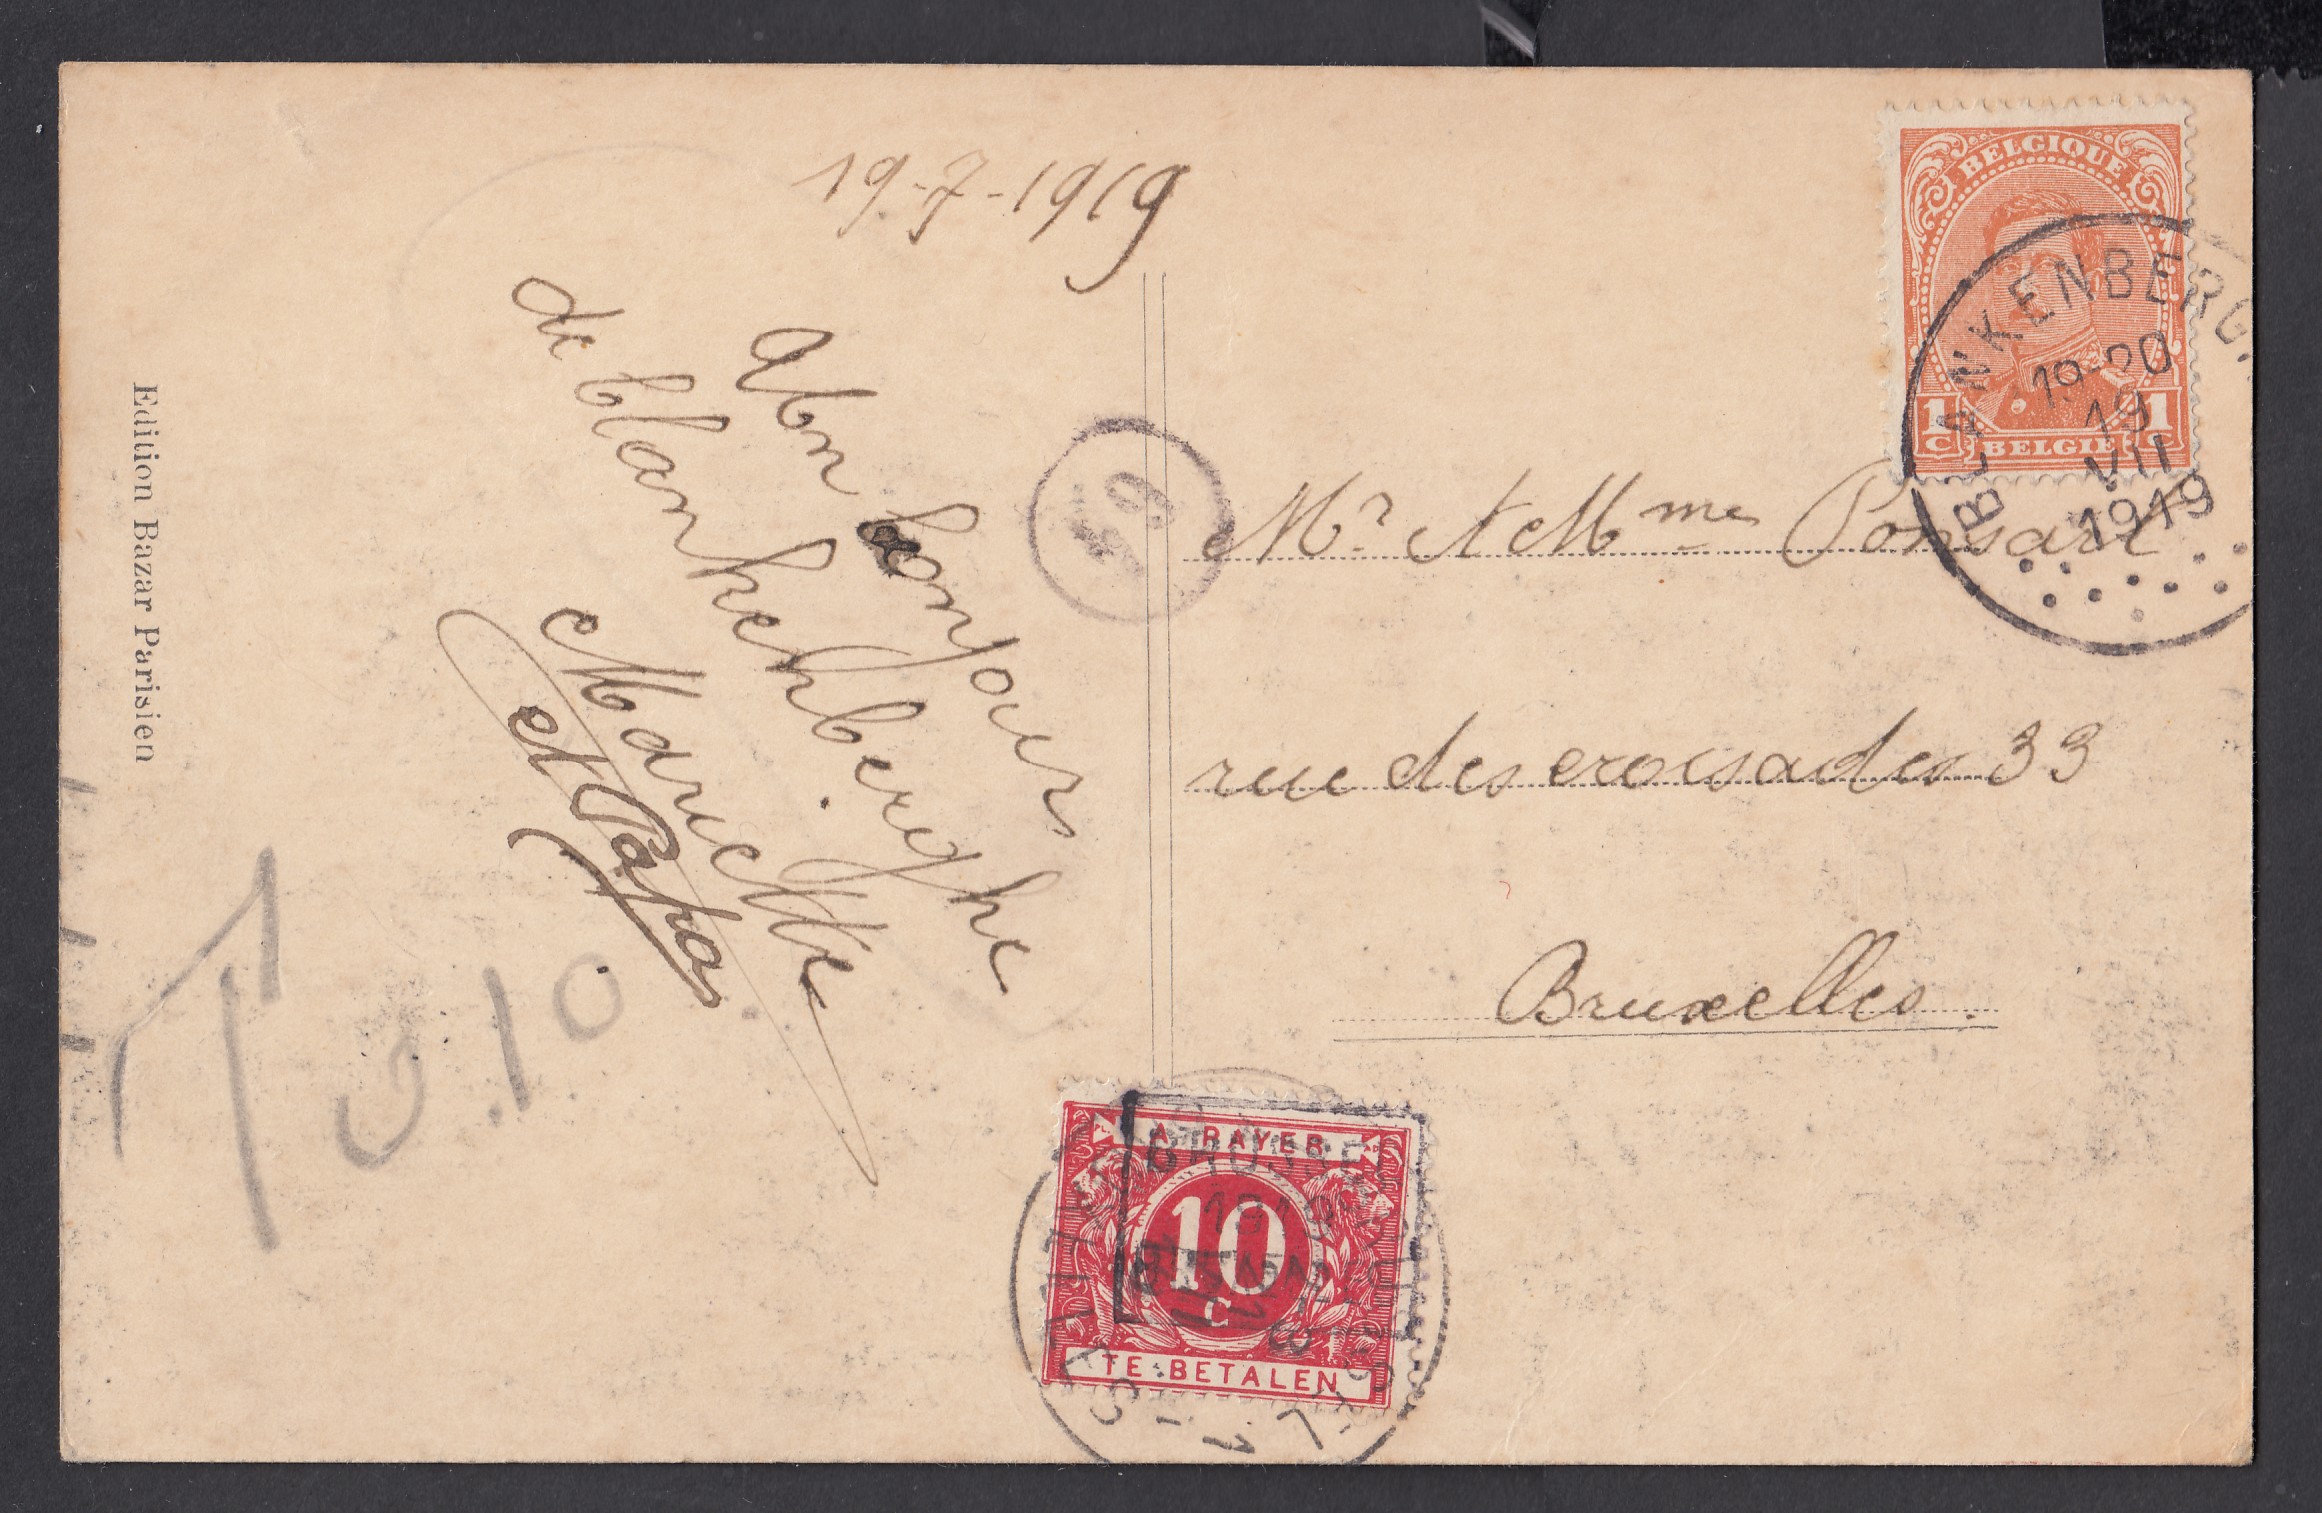 19-7-1919
Un bonjour
de Blankenberghe
Mariette
et Papa
Edition Bazar Parisien
T 0.10
BELGIQUE
1 C 1 C
BELGIË
BLANKENBERG
19
VII
1919
Mr et Mme Ponsart
rue des croisades 33
Bruxelles.
A PAYER
10
C
TE BETALEN